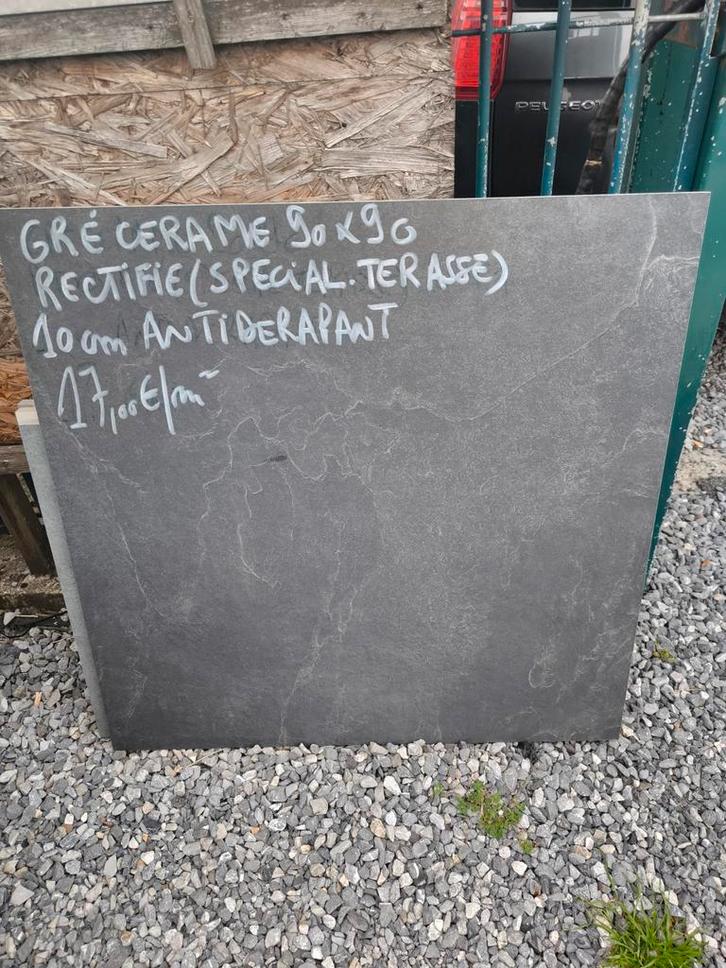 PEUGEOT
GRÉ CERAME 90x90
RECTIFIE (SPECIAL.TERASSE)
10cm ANTIDERAPANT
17,00€/m²